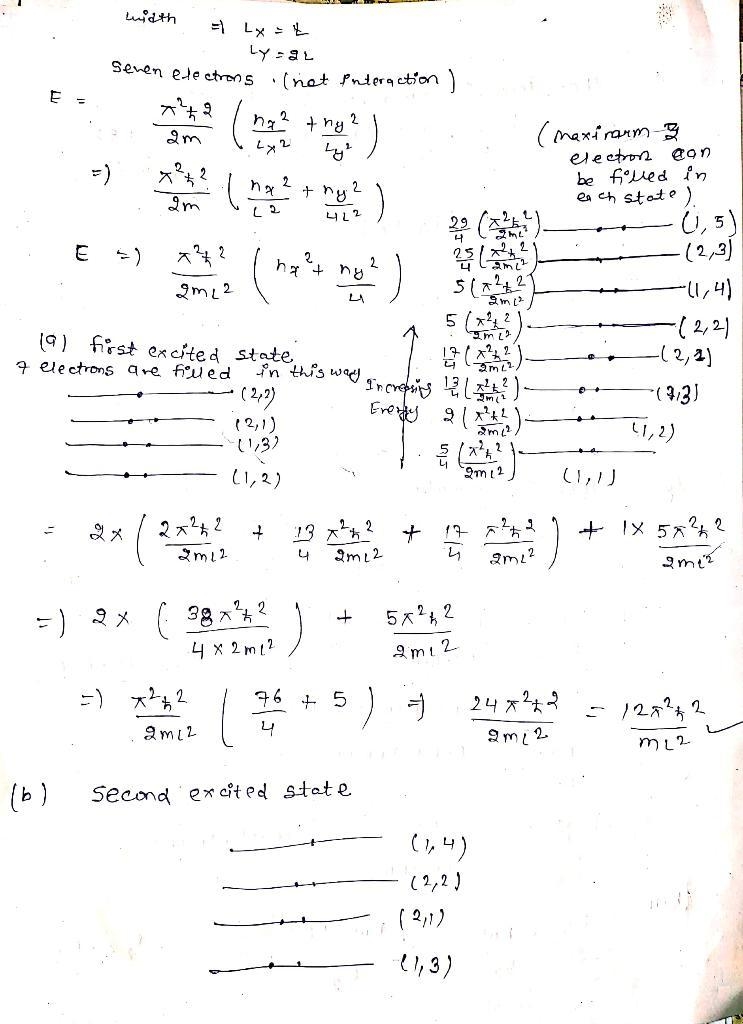 width => Lx = L
Ly = 2L
Seven electrons . (not Interaction)
E = π²ħ²/2m (nx²/Lx² + ny²/Ly²)
=) π²ħ²/2m (nx²/L² + ny²/4L²)
E =) π²ħ²/2mL² (nx² + ny²/4)
(maximum 2
electron can
be filled in
each state)
29/4 (π²ħ²/2mL²) (1,5)
25/4 (π²ħ²/2mL²) (2,3)
5 (π²ħ²/2mL²) (1,4)
5 (π²ħ²/2mL²) (2,2)
17/4 (π²ħ²/2mL²) (2,1)
13/4 (π²ħ²/2mL²) (1,3)
2 (π²ħ²/2mL²) (1,2)
5/4 (π²ħ²/2mL²) (1,1)
Increasing
Energy
(a) first excited state
7 electrons are filled in this way
(2,2)
(2,1)
(1,3)
(1,2)
= 2x (2π²ħ²/2mL² + 13/4 π²ħ²/2mL² + 17/4 π²ħ²/2mL²) + 1x 5π²ħ²/2mL²
=) 2x (38π²ħ²/4x2mL²) + 5π²ħ²/2mL²
=) π²ħ²/2mL² (76/4 + 5) => 24π²ħ²/2mL² = 12π²ħ²/mL²
(b) Second excited state
(1,4)
(2,2)
(2,1)
(1,3)